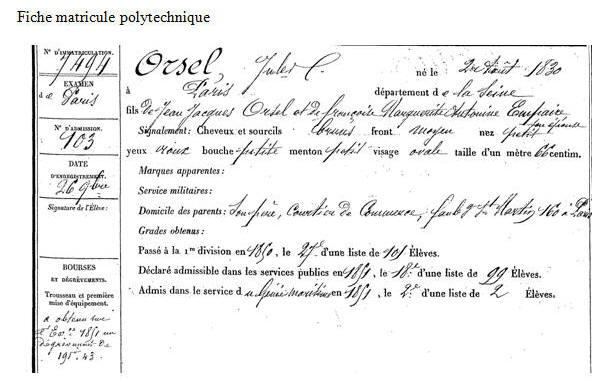 Fiche matricule polytechnique
N° D'IMMATRICULATION.
7494
EXAMEN
d e Paris
N° D'ADMISSION.
103
DATE
D'ENREGISTREMENT.
26 9bre
Signature de l'Élève:
BOURSES
ET DÉGRÈVEMENTS.
Trousseau et première
mise d'équipement.
a obtenu sur
1851 un
dégrèvement de
195f. 43
Orsel, Jules C. né le 2 Août 1830
à Paris département de la Seine
fils de Jean Jacques Orsel et de françoise Marguerite Antonine Empaire
son épouse
Signalement: Cheveux et sourcils bruns front moyen nez petit
yeux roux bouche petite menton petit visage ovale taille d'un mètre 66 centim.
Marques apparentes:
Service militaires:
Domicile des parents: Son père, Courtier de Commerce, faubg St Martin 160 à Paris
Grades obtenus:
Passé à la 1re division en 1850, le 27e d'une liste de 101 Élèves.
Déclaré admissible dans les services publics en 1851, le 18e d'une liste de 99 Élèves.
Admis dans le service du Génie maritime en 1851, le 2e d'une liste de 2 Élèves.